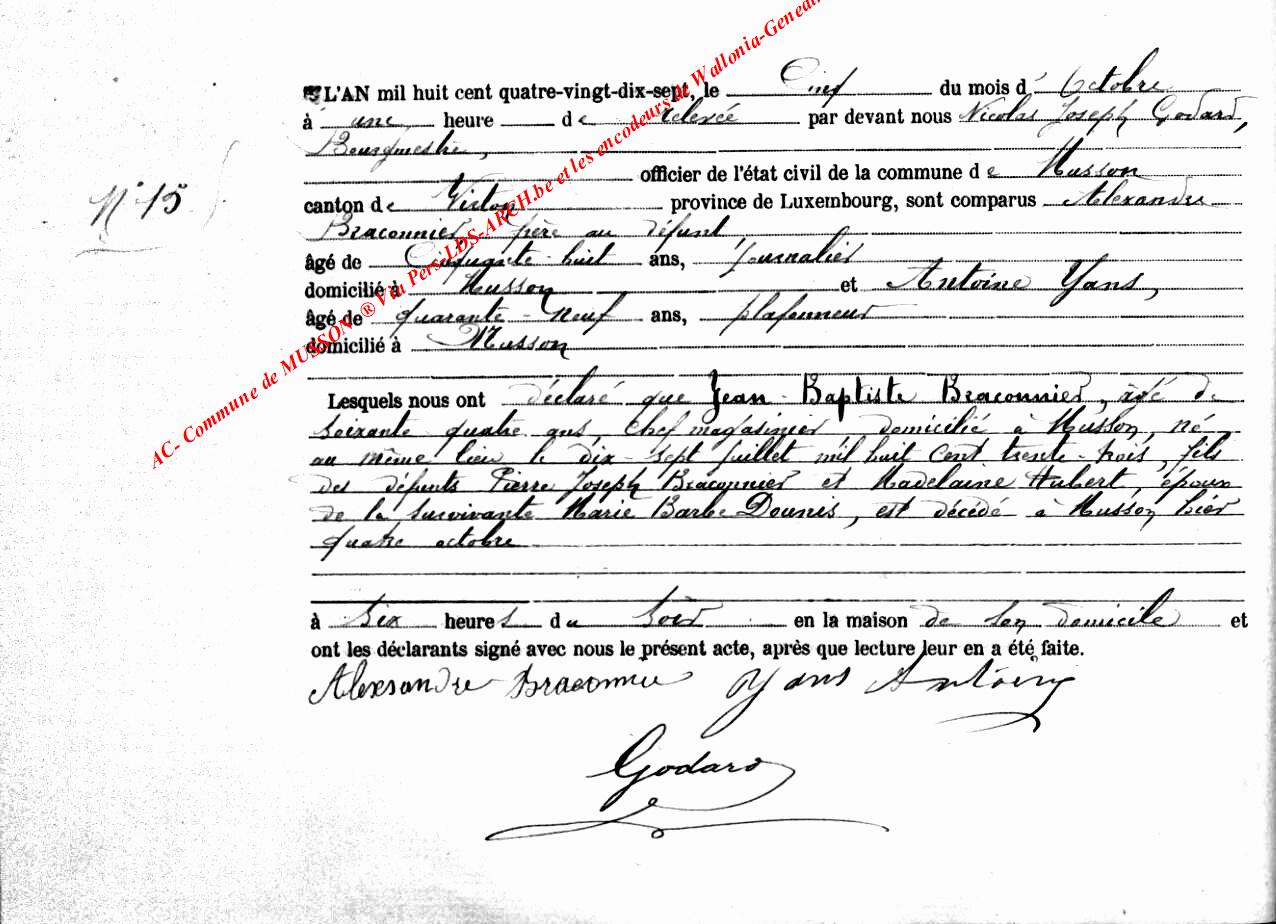 AC- Commune de MUSSON ® Via Pers LDS-ARCH.be et les encodeurs de Wallonia-Geneal
L'AN mil huit cent quatre-vingt-dix-sept, le Cinq du mois d' Octobre
à une heure de relevée par devant nous Nicolas Joseph Godard,
Bourgmestre,
officier de l'état civil de la commune de Musson
N° 15
canton de Virton province de Luxembourg, sont comparus Alexandre
Braconnier, frère au défunt,
âgé de Cinquante-huit ans, journalier
domicilié à Musson et Antoine Yans,
âgé de quarante-neuf ans, plafonneur
domicilié à Musson
Lesquels nous ont déclaré que Jean-Baptiste Braconnier, âgé de
soixante quatre ans, chef magasinier domicilié à Musson, né
au même lieu le dix-sept juillet mil huit cent trente-trois, fils
des défunts Pierre Joseph Braconnier et Madelaine Hubert, époux
de la survivante Marie Barbe Dounis, est décédé à Musson hier
quatre octobre
à six heures du soir en la maison de son domicile et
ont les déclarants signé avec nous le présent acte, après que lecture leur en a été faite.
Alexsandre Braconnie Yans Antoine
Godard